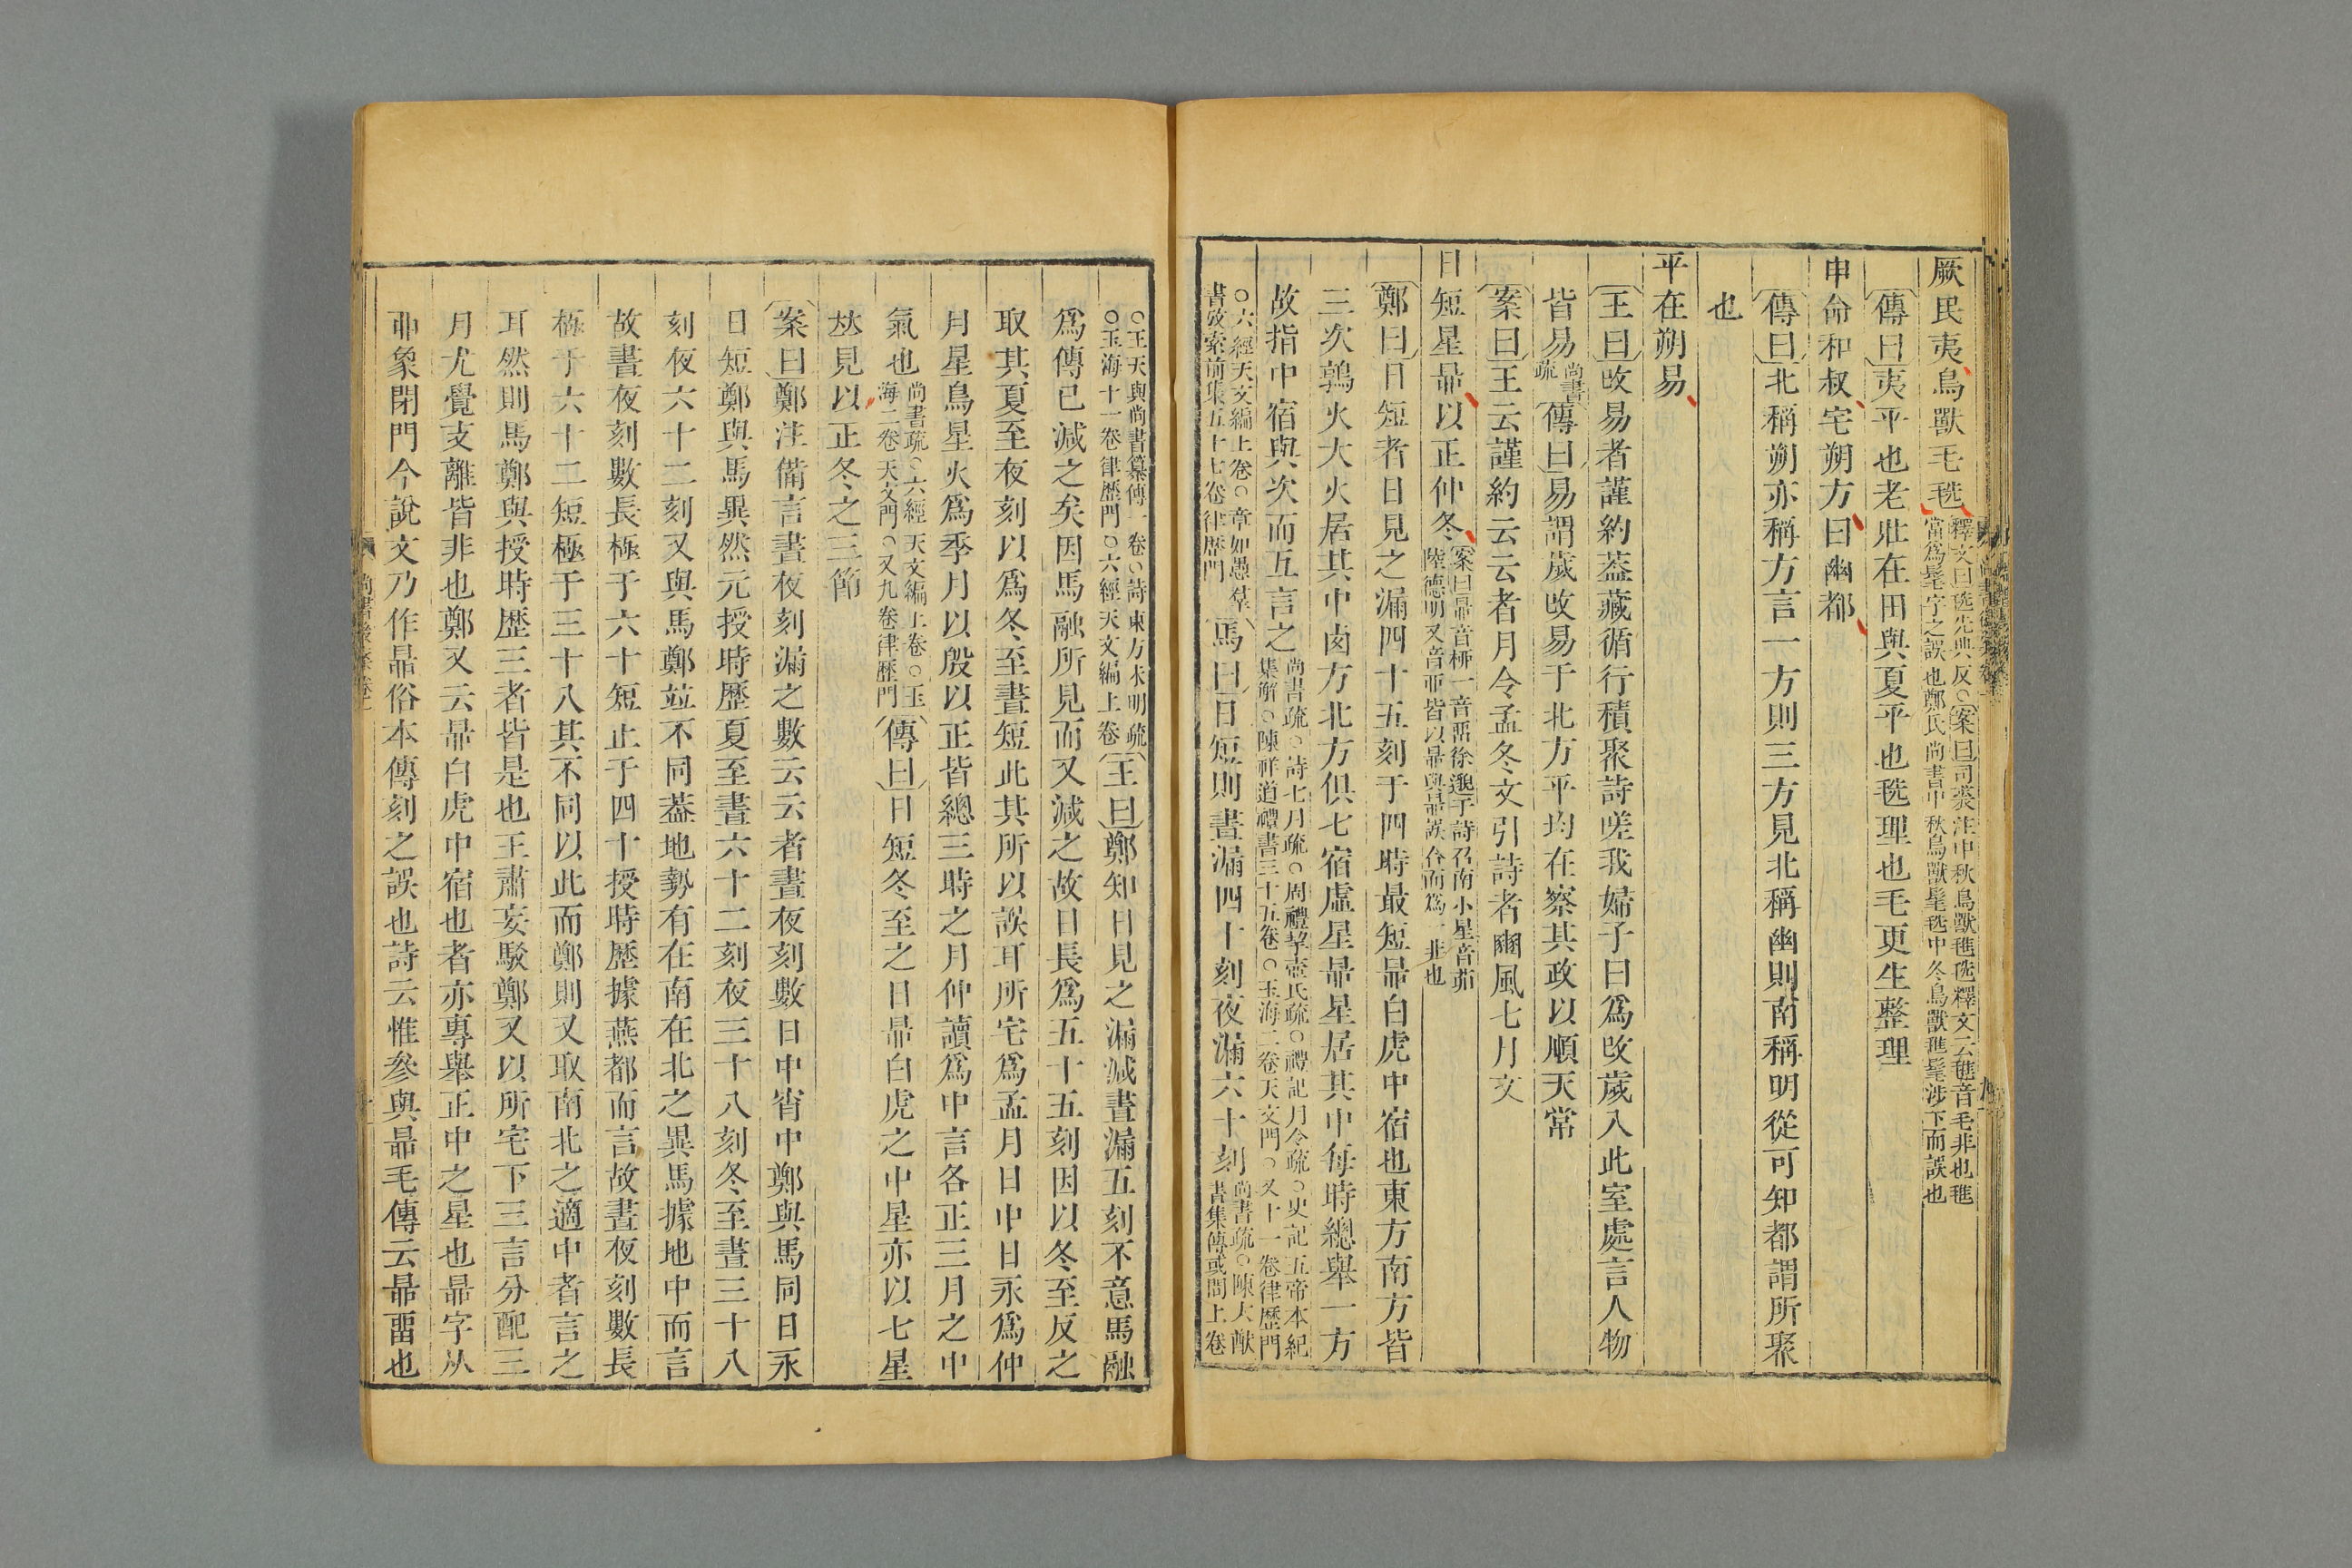 厥民夷鳥獸毛毨釋文曰毨先典反○案曰司裘注中秋鳥獸毨釋文云音毛非也
當爲髦字之誤也鄭氏尚書中秋鳥獸髦毨中冬鳥獸髦涉下而誤也
傳曰夷平也老壯在田與夏平也毨理也毛更生整理
申命和叔宅朔方曰幽都
傳曰北稱朔亦稱方言一方則三方見北稱幽則南稱明從可知都謂所聚
也
平在朔易
王曰改易者謹約葢藏循行積聚詩嗟我婦子曰爲改歲入此室處言人物
皆易尚書疏傳曰易謂歲改易于北方平均在察其政以順天常
案曰王云謹約云云者月令孟冬文引詩者豳風七月文
日短星昴以正仲冬案曰昴音桺一音畱徐邈于詩召南小星音茆
陸德明又音亜皆以昴與昴誤合而爲一非也
鄭曰日短者日見之漏四十五刻于四時最短昴白虎中宿也東方南方皆
三次鶉火大火居其中鹵方北方俱七宿虛星昴星居其中每時總舉一方
故指中宿與次而互言之尚書疏○詩七月疏○周禮挈壺氏疏○禮記月令疏○史記五帝本紀
集解○陳祥道禮書三十五卷○玉海二卷天文門○又十一卷律歷門
○六經天文編上卷○章如愚羣
書攷索前集五十七卷律歷門馬曰日短則晝漏四十刻夜漏六十刻尚書疏○陳大猷
書集傳或問上卷
○王天與尚書纂傳一卷○詩東方未明疏
○玉海十一卷律歷門○六經天文編上卷王曰鄭知日見之漏減晝漏五刻不意馬融
爲傳已減之矣因馬融所見而又減之故日長爲五十五刻因以冬至反之
取其夏至夜刻以爲冬至晝短此其所以誤耳所宅爲孟月日中日永爲仲
月星鳥星火爲季月以殷以正皆總三時之月仲讀爲中言各正三月之中
氣也尚書疏○六經天文編上卷○玉
海二卷天文門○又九卷律歷門傳曰日短冬至之日昴白虎之中星亦以七星
𠀤見以正冬之三節
案曰鄭注備言晝夜刻漏之數云云者晝夜刻數日中宵中鄭與馬同日永
日短鄭與馬異然元授時歷夏至晝六十二刻夜三十八刻冬至晝三十八
刻夜六十二刻又與馬鄭竝不同葢地勢有在南在北之異馬據地中而言
故晝夜刻數長極于六十短止于四十授時歷據燕都而言故晝夜刻數長
極于六十二短極于三十八其不同以此而鄭則又取南北之適中者言之
耳然則馬鄭與授時歷三者皆是也王肅妄駁鄭又以所宅下三言分配三
月尤覺支離皆非也鄭又云昴白虎中宿也者亦專舉正中之星也昴字从
丣象閉門今說文乃作昴俗本傳刻之誤也詩云惟參與昴毛傳云昴畱也